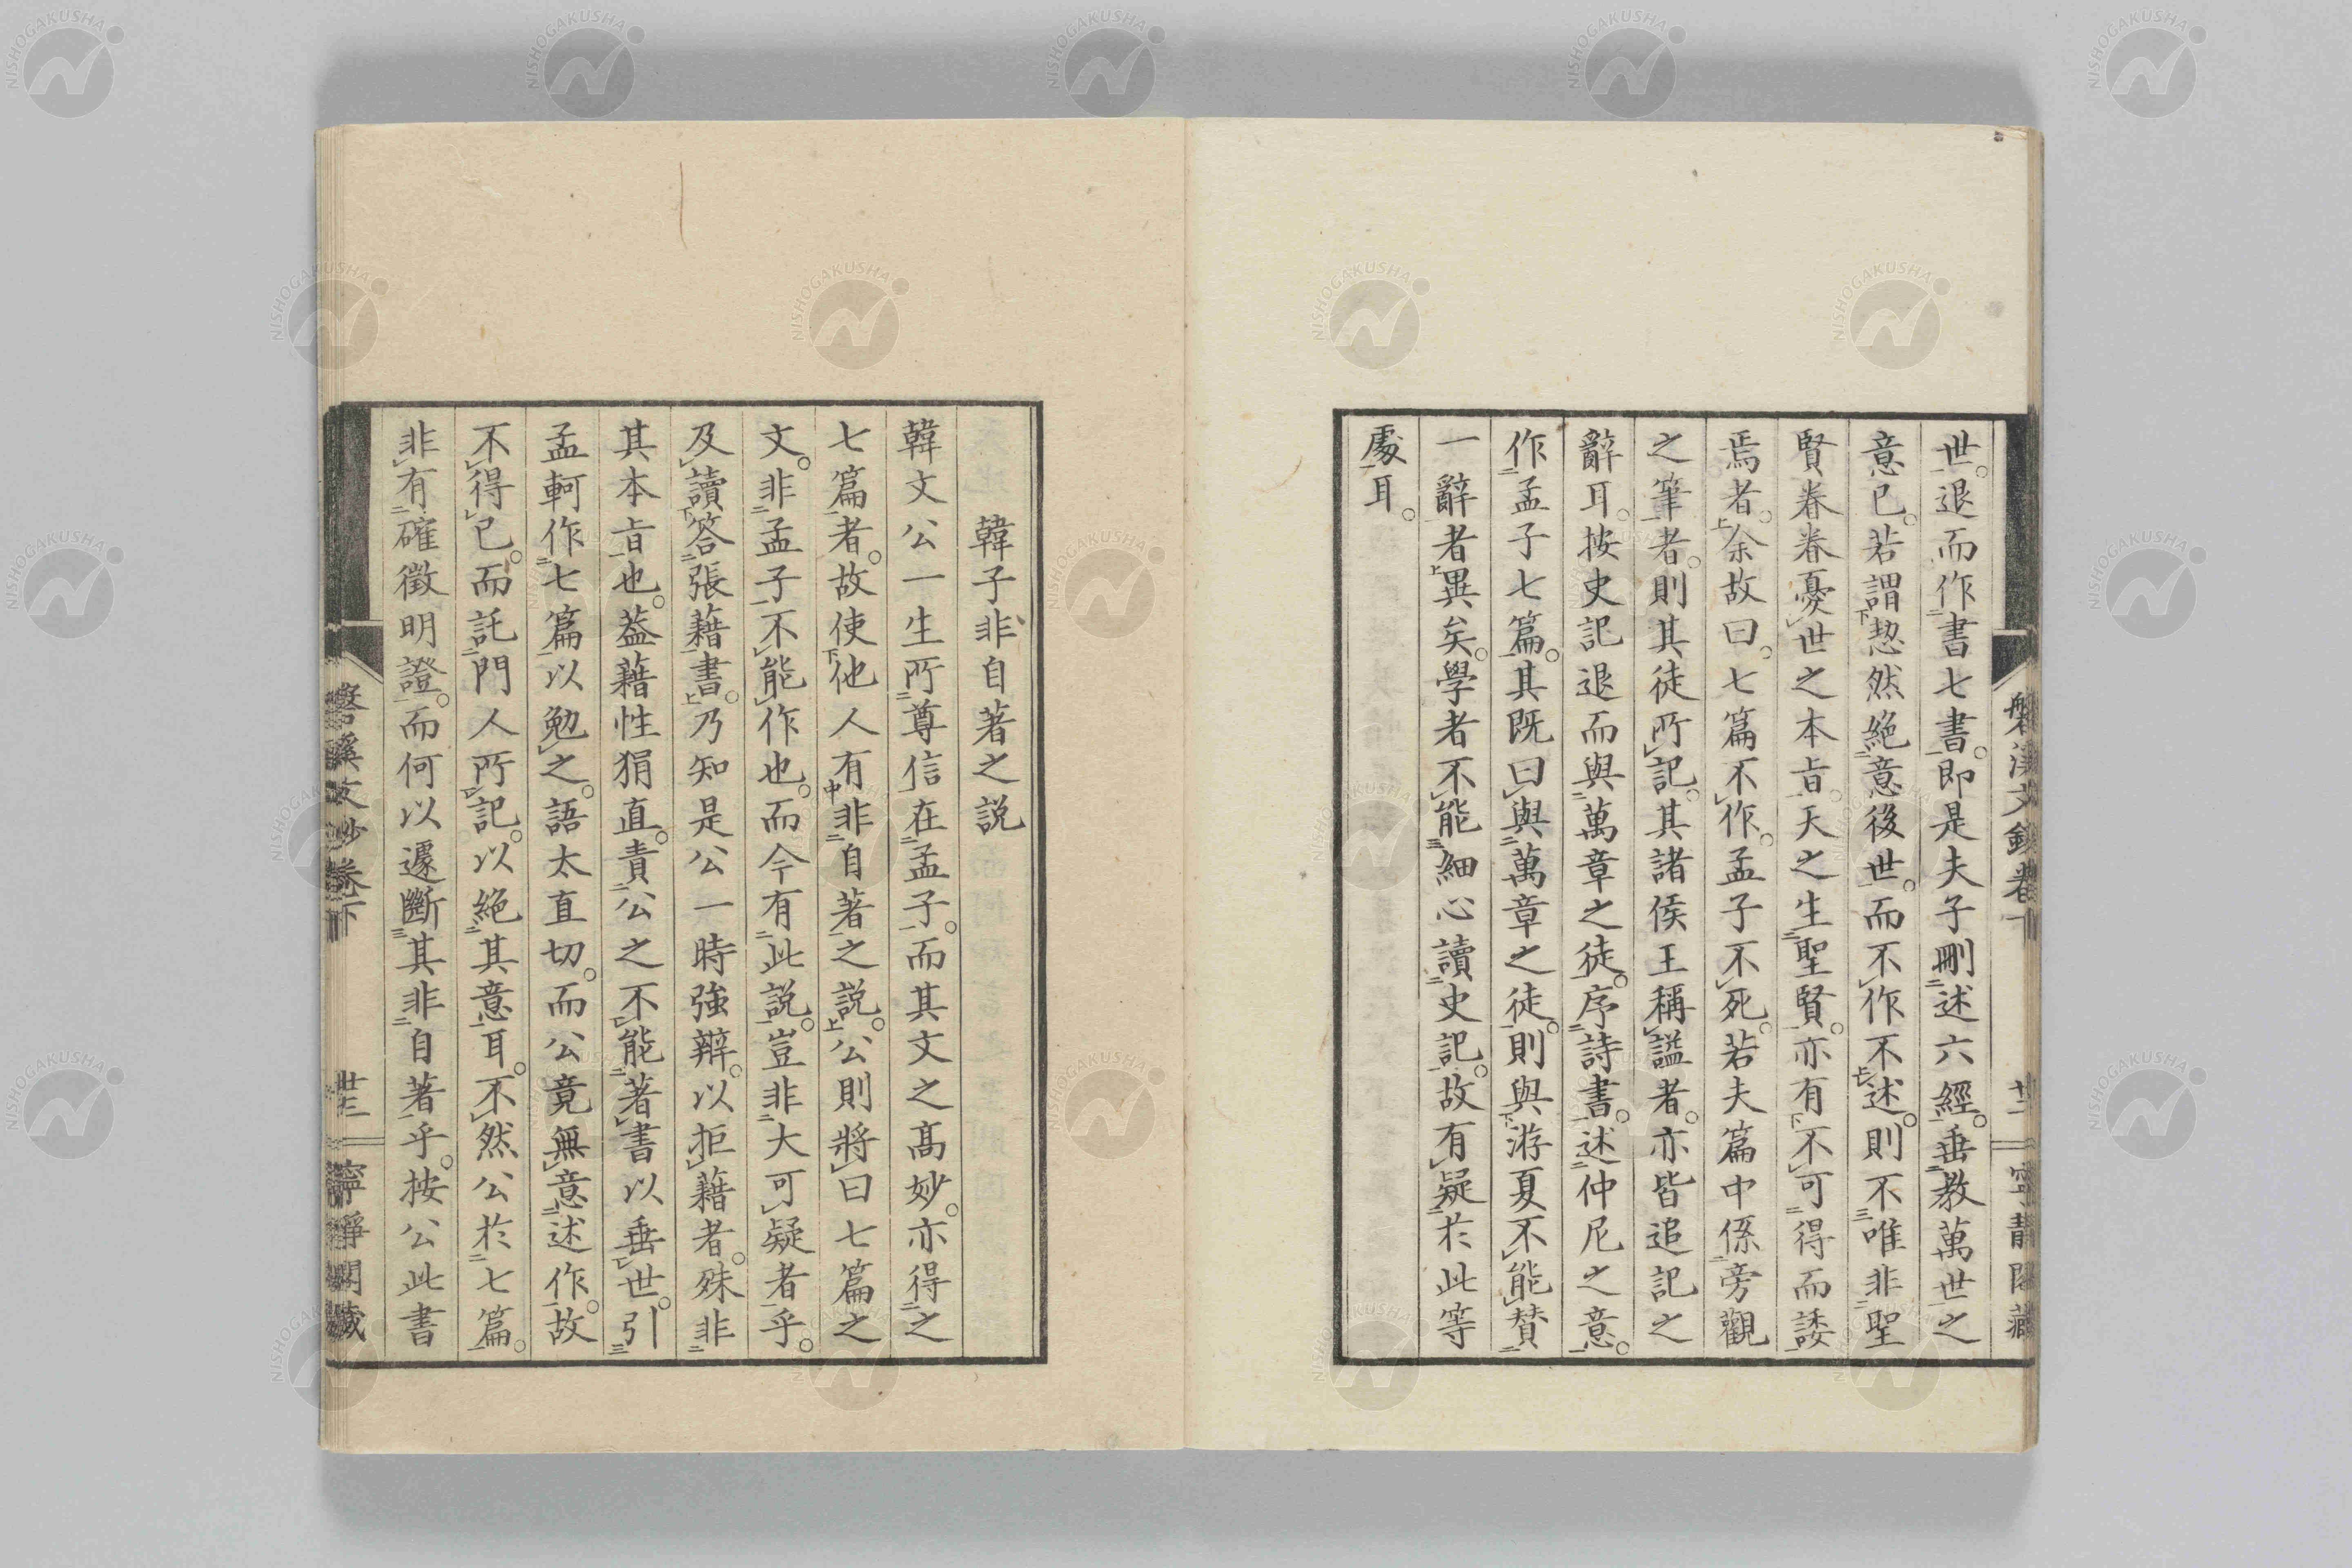 世。退而作書七書。即是夫子刪述六經。垂教萬世之
意已。若謂愸然絶意後世。而不作不述。則不唯非聖
賢眷眷憂世之本旨。天之生聖賢。亦有不可得而諉
焉者。余故曰。七篇不作。孟子不死。若夫篇中係旁觀
之筆者。則其徒所記。其諸侯王稱謚者。亦皆追記之
辭耳。按史記退而與萬章之徒。序詩書。述仲尼之意。
作孟子七篇。其既曰與萬章之徒。則與游夏不能賛
一辭者異矣。學者不能細心讀史記。故有疑於此等
處耳。
韓子非自著之説
韓文公一生所尊信在孟子。而其文之高妙。亦得之
七篇者。故使他人有非自著之説。公則將曰七篇之
文。非孟子不能作也。而今有此説。豈非大可疑者乎。
及讀答張藉書。乃知是公一時強辯。以拒藉者。殊非
其本旨也。葢藉性狷直。責公之不能著書以垂世。引
孟軻作七篇以勉之。語太直切。而公竟無意述作。故
不得已。而託門人所記。以絶其意耳。不然公於七篇。
非有確徵明證。而何以遽斷其非自著乎。按公此書
磐溪文鈔卷下
廿三
寧靜閣藏